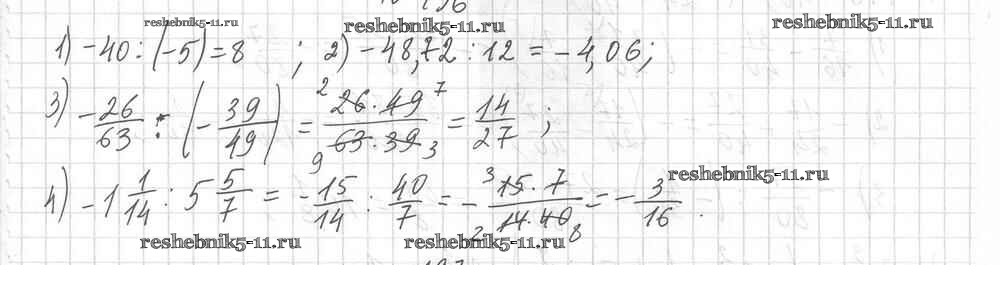 reshebnik5-11.ru
reshebnik5-11.ru
reshebnik5-11.ru
1) -40 : (-5) = 8 ; 2) -48,72 : 12 = -4,06;
3) -26/63 : (-39/49) = 26·49/63·39 = 14/27 ;
2 7 9 3
reshebnik5-11.ru
4) -1 1/14 : 5 5/7 = -15/14 : 40/7 = - 15·7/14·40 = - 3/16 .
3 2 8
reshebnik5-11.ru
reshebnik5-11.ru